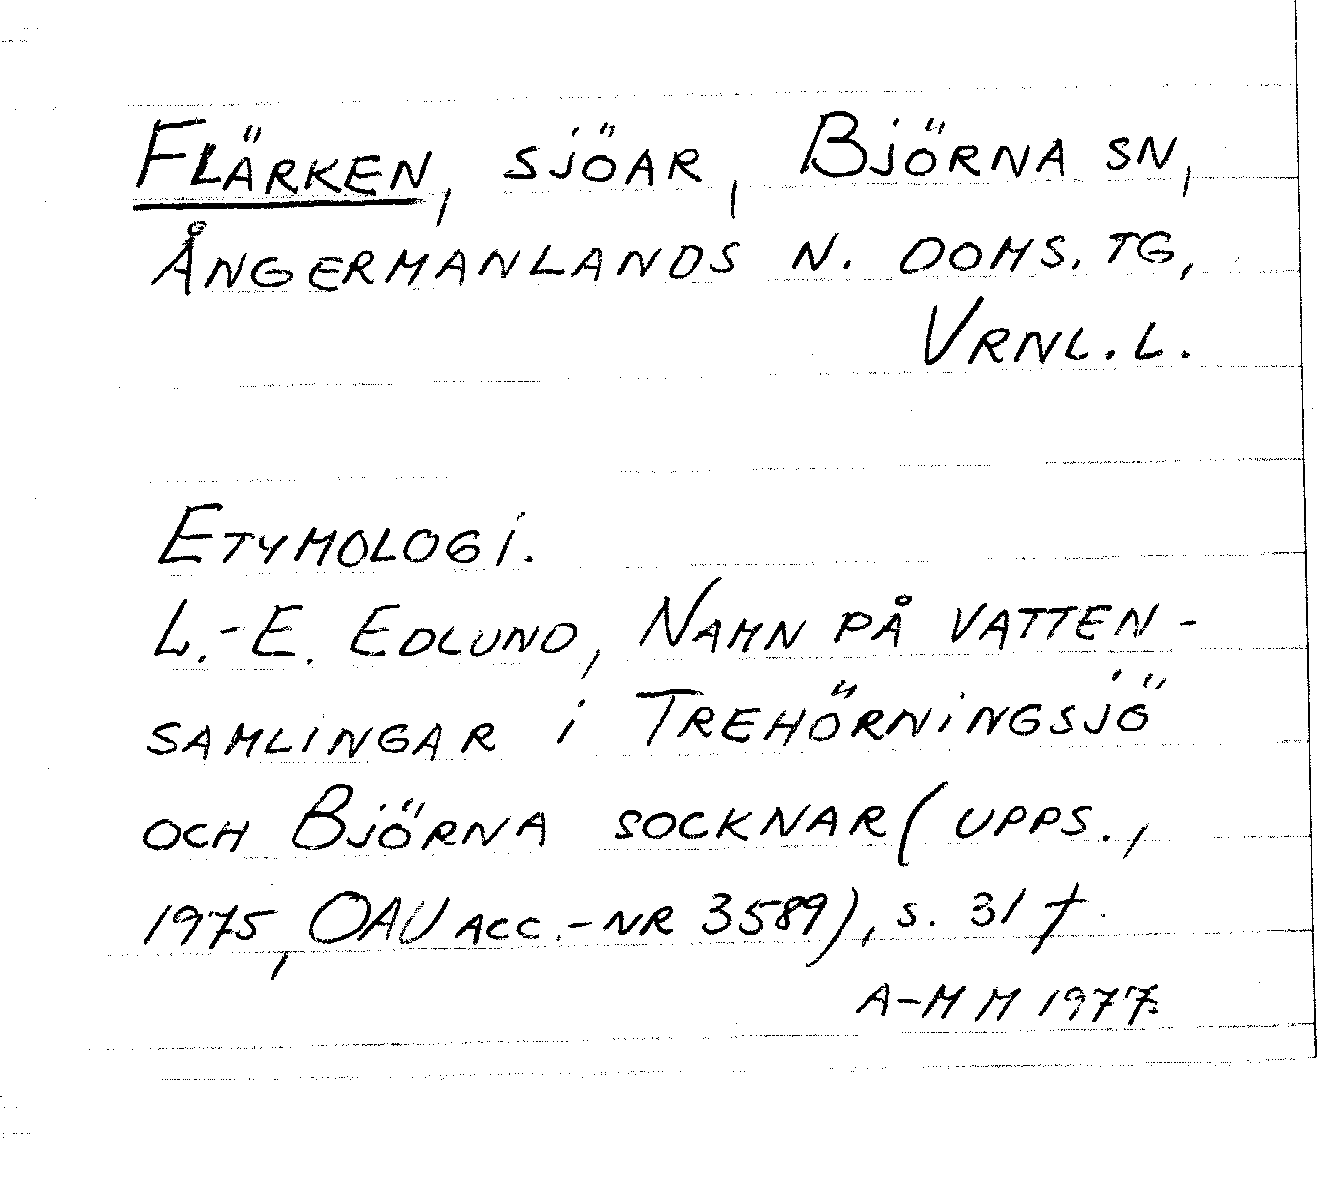 Flärken, sjöar, Björna sn,
Ångermanlands n. doms. tg,
Vrnl. l.
Etymologi.
L.-E. Edlund, Namn på vatten-
samlingar i Trehörningsjö
och Björna socknar (Upps.,
1975, OAU acc.-nr 3589), s. 31 f.
A-M M 1977.